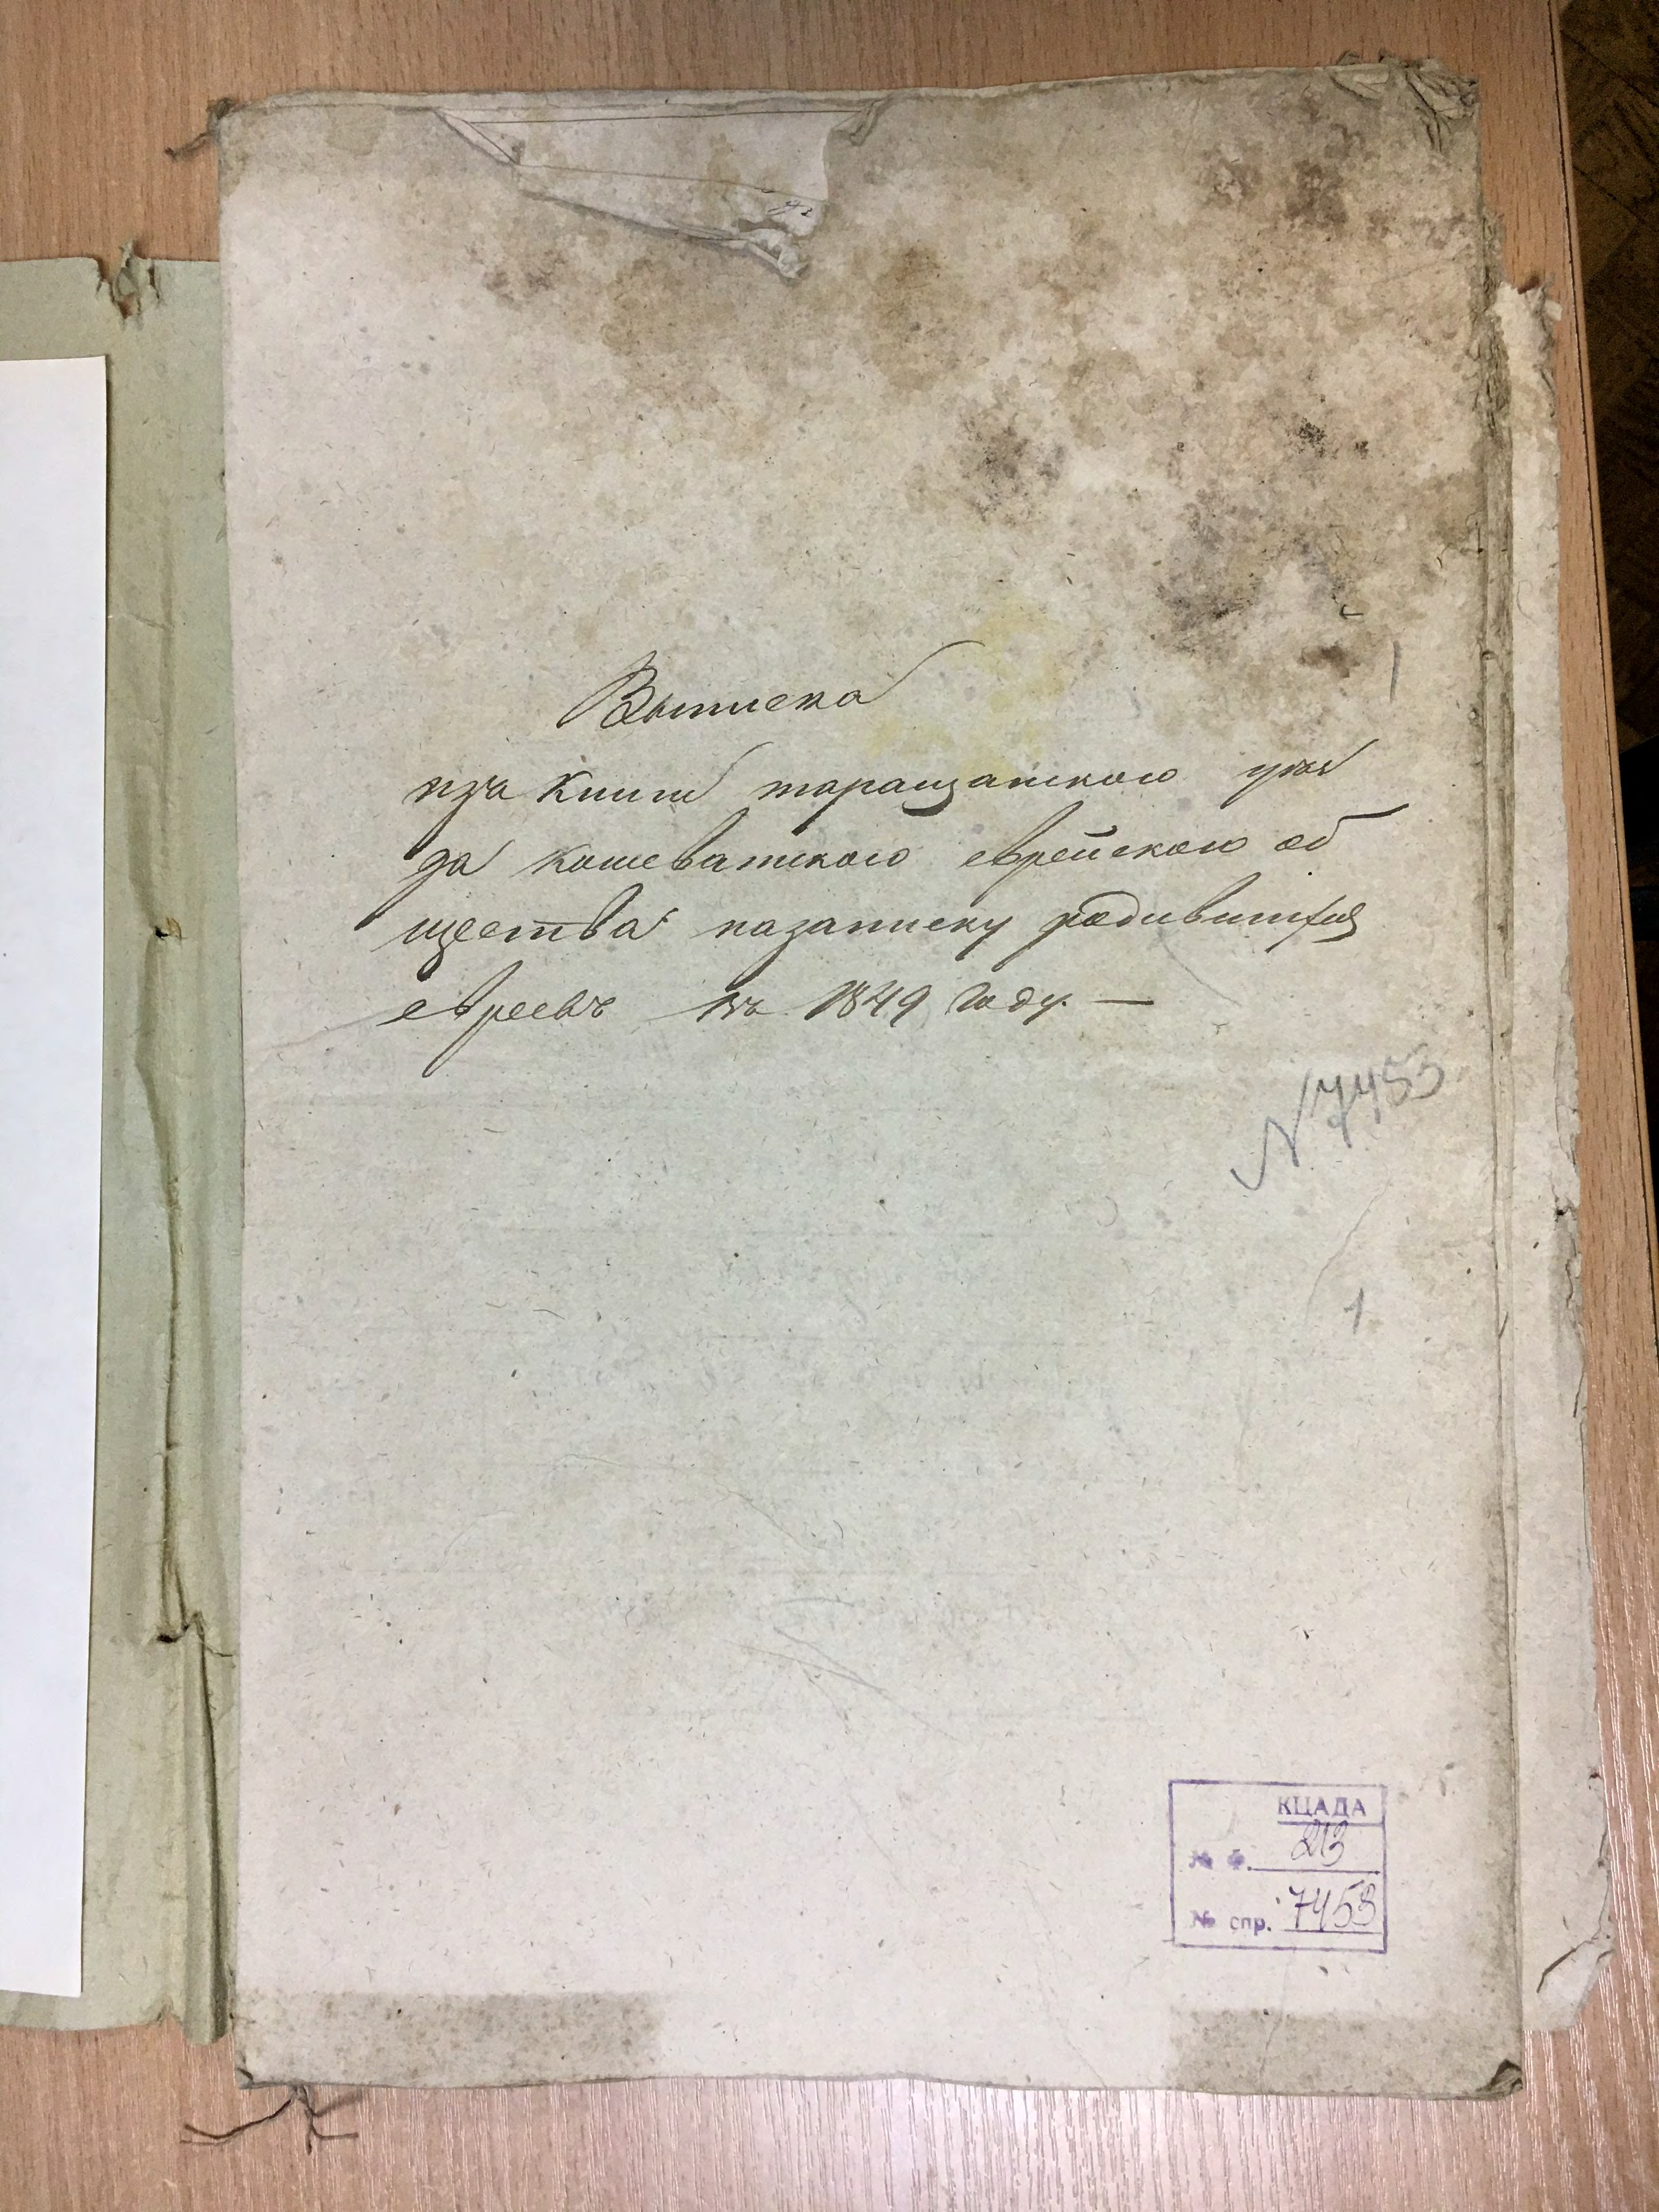 Выписка
изъ книги таращанского уѣз
да кошеватского еврейского об
щества назаписку родившихся
евреевъ въ 1849 году. —
N 7453
1
КЦАДА
№ Ф. 213
№ спр. 7453